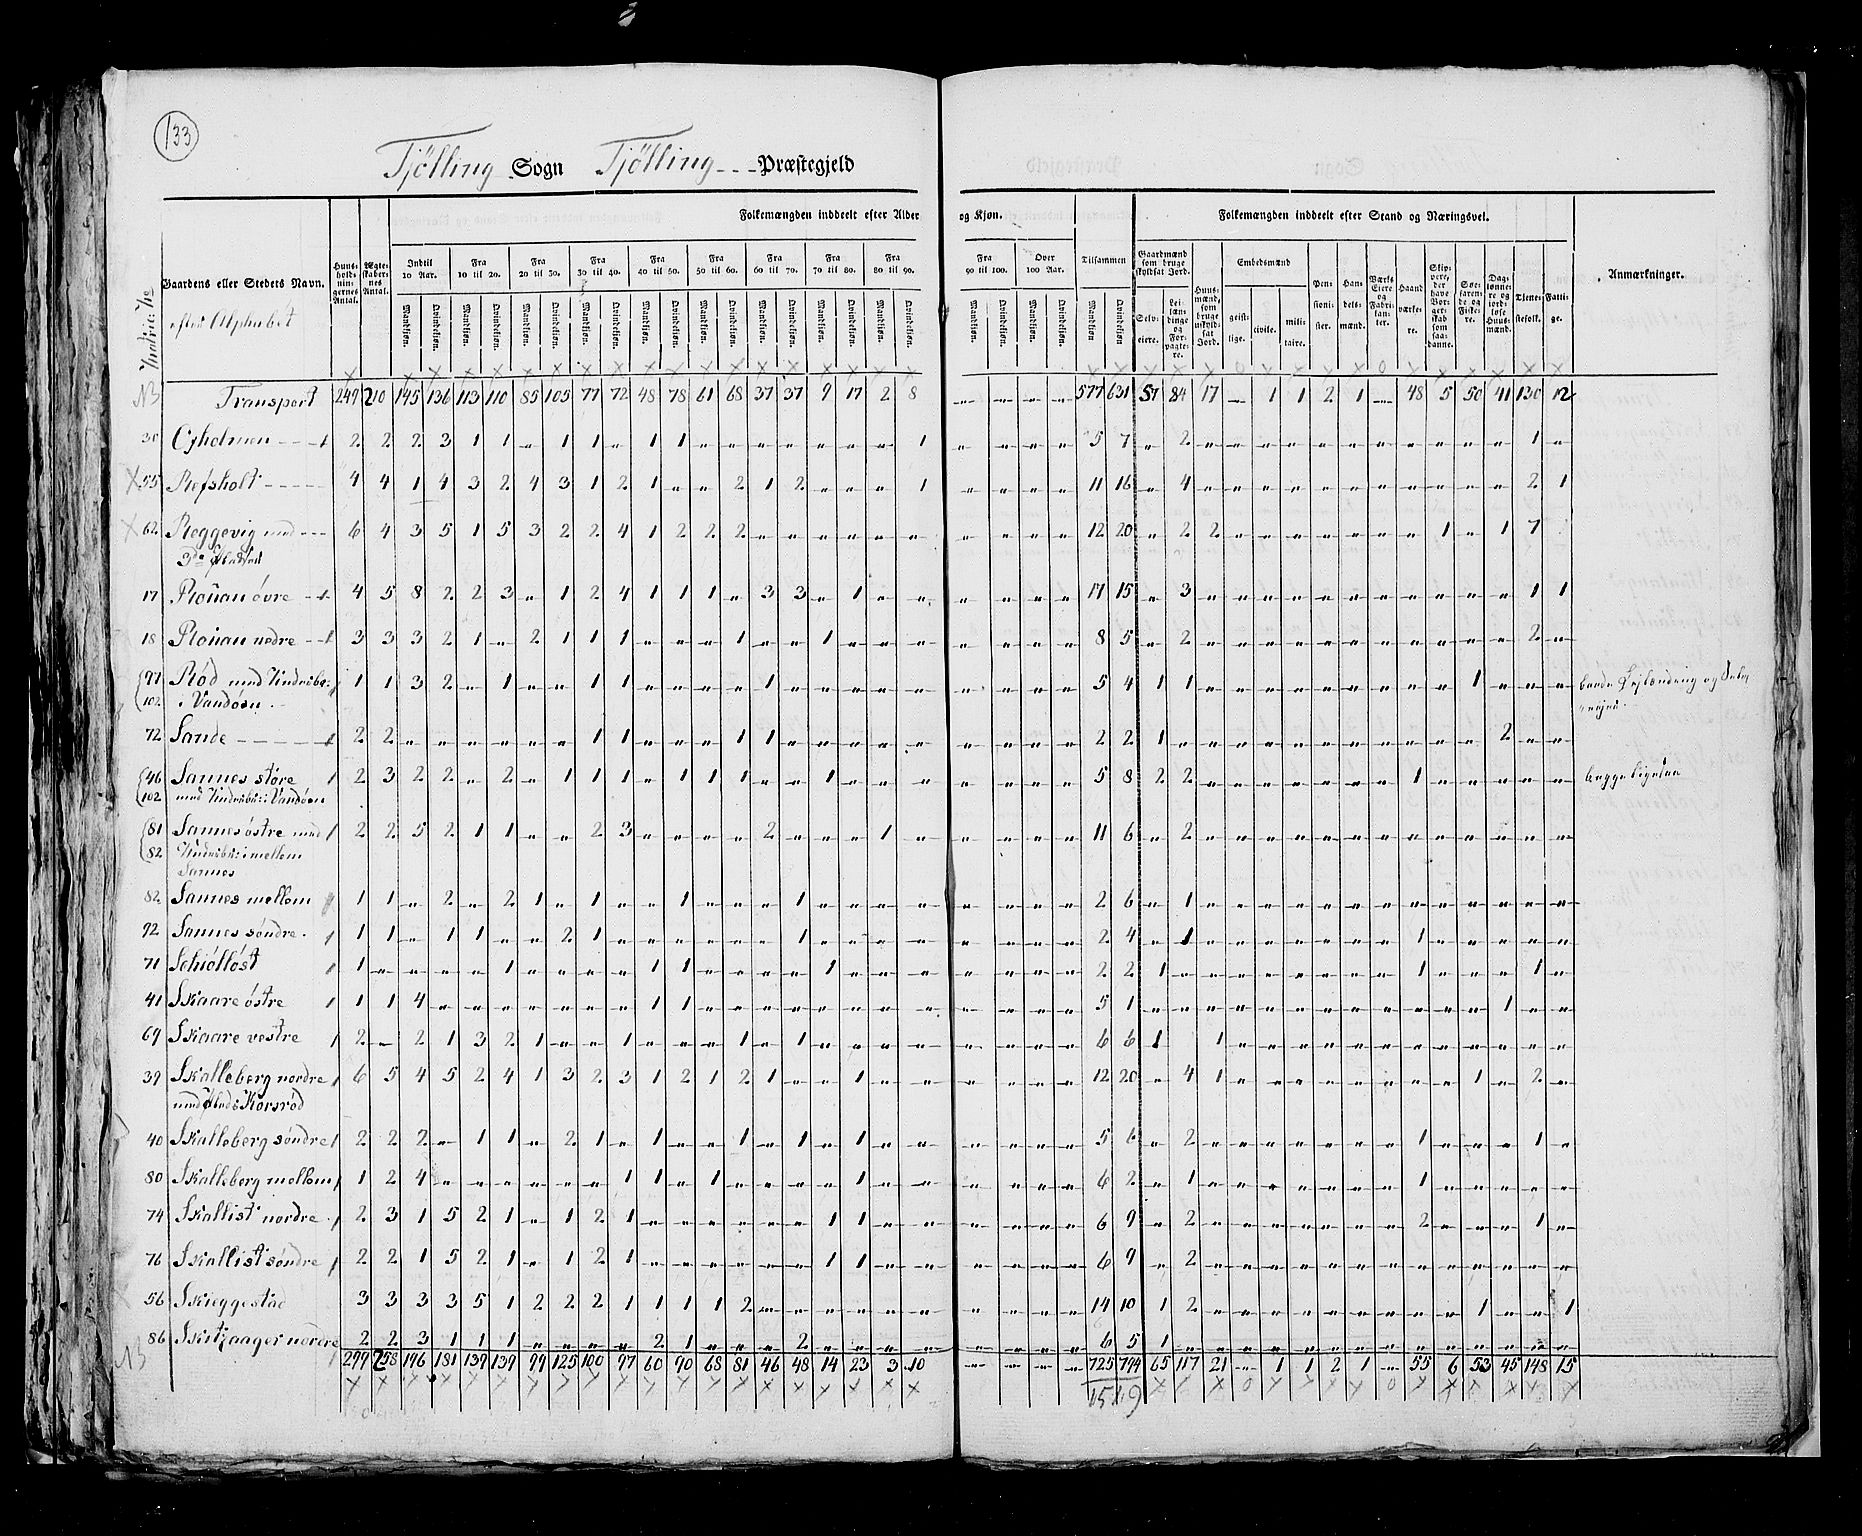 133
Tjölling Sogn Tjölling --- Præstegjeld
Folkemængden inddeelt efter Alder og Kjøn. Folkemængden inddeelt efter Stand og Næringsvei.
Matric: No
Gaardens eller Stedets Navn.
efter Alphabet
Huus-holdningernes Antal.
Ægteskabernes Antal.
Indtil 10 Aar.
Fra 10 til 20.
Fra 20 til 30.
Fra 30 til 40.
Fra 40 til 50.
Fra 50 til 60.
Fra 60 til 70.
Fra 70 til 80.
Fra 80 til 90.
Fra 90 til 100.
Over 100 Aar.
Tilsammen
Mandkiøn. Qvindekiøn.
Gaardmænd som bruge skyldsat Jord.
Selveiere.
Leilændinge og Forpagtere.
Huusmænd, som bruge uskyldsat Jord.
Embedsmænd
geistlige. civile. militaire.
Pensionister.
Handelsmænd.
Værks Eiere og Fabrikanter.
Haandværkere.
Skippere, der have Borgerskab som saadanne.
Søefarende og Fiskere.
Daglønnere og jordløse Huusmænd.
Tjenestefolk.
Fattige.
Anmærkninger.
Transport 249 210 145 136 113 110 85 105 77 72 48 78 61 68 37 37 9 17 2 8 " " " " 577 631 57 84 17 " 1 1 2 1 " 48 5 50 41 130 12
30 Oxholmen 1 2 2 2 3 1 1 " 1 1 " 1 1 " " " " " " " 1 " " " " 5 7 " 2 " " " " " " " " " " " 1 "
55 Refsholt 4 4 1 4 3 2 4 3 1 2 1 " " 2 1 2 " " " 1 " " " " 11 16 " 4 " " " " " " " " " " " 2 1
62 Reggevig med 6 4 3 5 1 5 3 2 2 4 1 2 2 2 " " " " " " " " " " 12 20 " 2 2 " " " " " " " 1 " 1 7
17 Rönan övre 1 4 5 8 2 2 3 " 1 2 4 1 1 1 " 3 3 " 1 " " " " " " 17 15 " 3 " " " " " " " " " " " 1 1
18 Rönan nedre 1 3 3 3 2 1 " 2 1 1 1 " " " 1 " " 1 " " " " " " " 8 5 " 2 " " " " " " " " " " " 2 "
97 Röd med Underbr: 1 1 3 2 " 1 " " 1 1 " " " " 1 " " " " " " " " " 5 4 1 1 " " " " " " " " " 1 " " "
102 i Vandöen.
72 Sande 1 2 2 " " " " " " 1 1 " " " 1 1 " " " " " " " " " 2 2 1 " " " " " " " " " " " 2 " "
46 Sannes störe 1 2 3 2 2 " 2 " 1 1 1 " 1 1 1 " " 1 " " " " " " " 5 8 2 2 " " " " " " " 1 " " " " "
begge ligesaa
102 med Underbr: i Vandöen
81 Sannes östre med 1 2 2 5 2 1 1 " " 2 3 " " " " 2 " " " 1 " " " " " 11 6 " 2 " " " " " " " " " " " " "
82 Underbr: i mellem
Sannes
82 Sannes mellem 1 1 " 2 " 2 1 " 1 " " 1 " " " 1 " " " " " " " " 2 6 " 1 " " " " " " " " " " " " "
92 Sannes söndre. 1 1 1 " 1 1 " " 2 1 " " " " " " 1 " " " " " " " " 2 4 " 1 " " " " " " " 1 " " " " "
71 Schiöllöst 1 " " " " 1 " " " " 1 1 " " " " 1 " " " " " " " 2 2 1 " " " " " " " " 1 " " " 1 "
41 Skaare östre 1 1 1 4 " " " " " " " 1 1 " " " " " " " " " " " " 5 1 " " " " " " " " " " " " 1 " "
69 Skaare vestre 1 2 " 2 1 3 2 1 " " 1 " " " 1 " 1 " " " " " " " " 6 6 1 1 " " " " " " " " " " " "
39 Skalleberg nordre 1 6 5 4 5 2 4 1 3 2 3 1 2 1 2 1 " " 1 " " " " " " 12 20 " 4 1 " " " " " " " " 1 " 2 "
40 Skalleberg söndre 1 2 2 2 " 1 1 " 2 1 " 1 " " 1 " 1 " 1 " " " " " " 5 6 " 2 " " " " " " " 1 " " " 1 "
80 Skalleberg mellem 1 1 2 4 " " " " " " 1 1 " 1 " " " " 1 " " " " " " 6 2 " 1 " " " " " " " 1 " " " " "
74 Skallist nordre 1 2 3 1 5 2 1 " 1 2 1 " " " " " " 1 1 " " " " " " 6 9 " 2 " " " " " " " 2 " " " 1 "
76 Skallist söndre 1 2 2 1 5 2 1 " 1 2 1 " " " " " " 1 1 " " " " " " 6 9 " 2 " " " " " " " " " " " " "
56 Skieggestad 3 3 3 3 5 1 2 2 2 1 1 1 1 2 " " " " " " " " " " 14 10 1 2 " " " " " " " " " 1 " " 1
86 Skitzaager nordre 2 2 3 1 1 1 " " " " 2 1 " " " 2 " " " " " " " " 6 5 1 " " " " " " " " " " " " " "
299 258 196 181 139 139 99 125 100 97 60 90 68 81 46 48 14 23 3 10 " " " " 725 794 65 117 21 " 1 1 2 1 " 55 6 53 45 148 15
1519